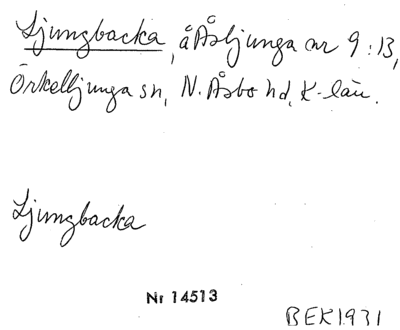 Ljungbacka, å Åsljunga nr 9:13,
Örkelljunga sn, N. Åsbo hd, K-län.
Ljungbacka
Nr 14513
BEK1931